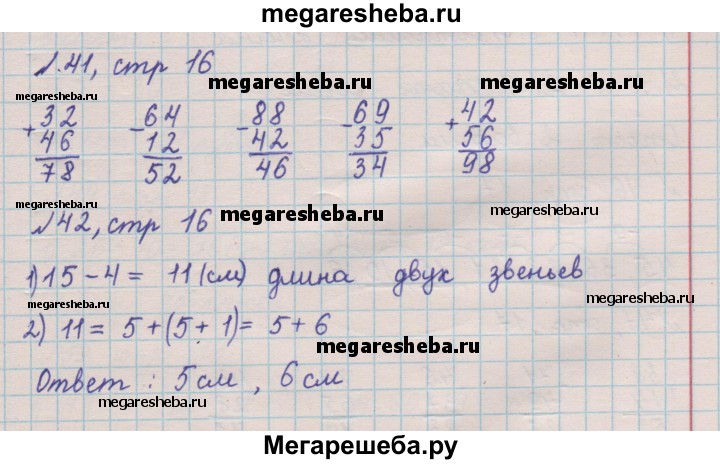 megaresheba.ru
№.41, стр 16
megaresheba.ru
megaresheba.ru
megaresheba.ru
+ 32 - 64 - 88 - 69 + 42
46 12 42 35 56
78 52 46 34 98
№42, стр 16
megaresheba.ru
megaresheba.ru
1) 15 - 4 = 11 (см) длина двух звеньев
megaresheba.ru
megaresheba.ru
2) 11 = 5 + (5 + 1) = 5 + 6
megaresheba.ru
Ответ : 5 см , 6 см
megaresheba.ru
Мегарешеба.ру